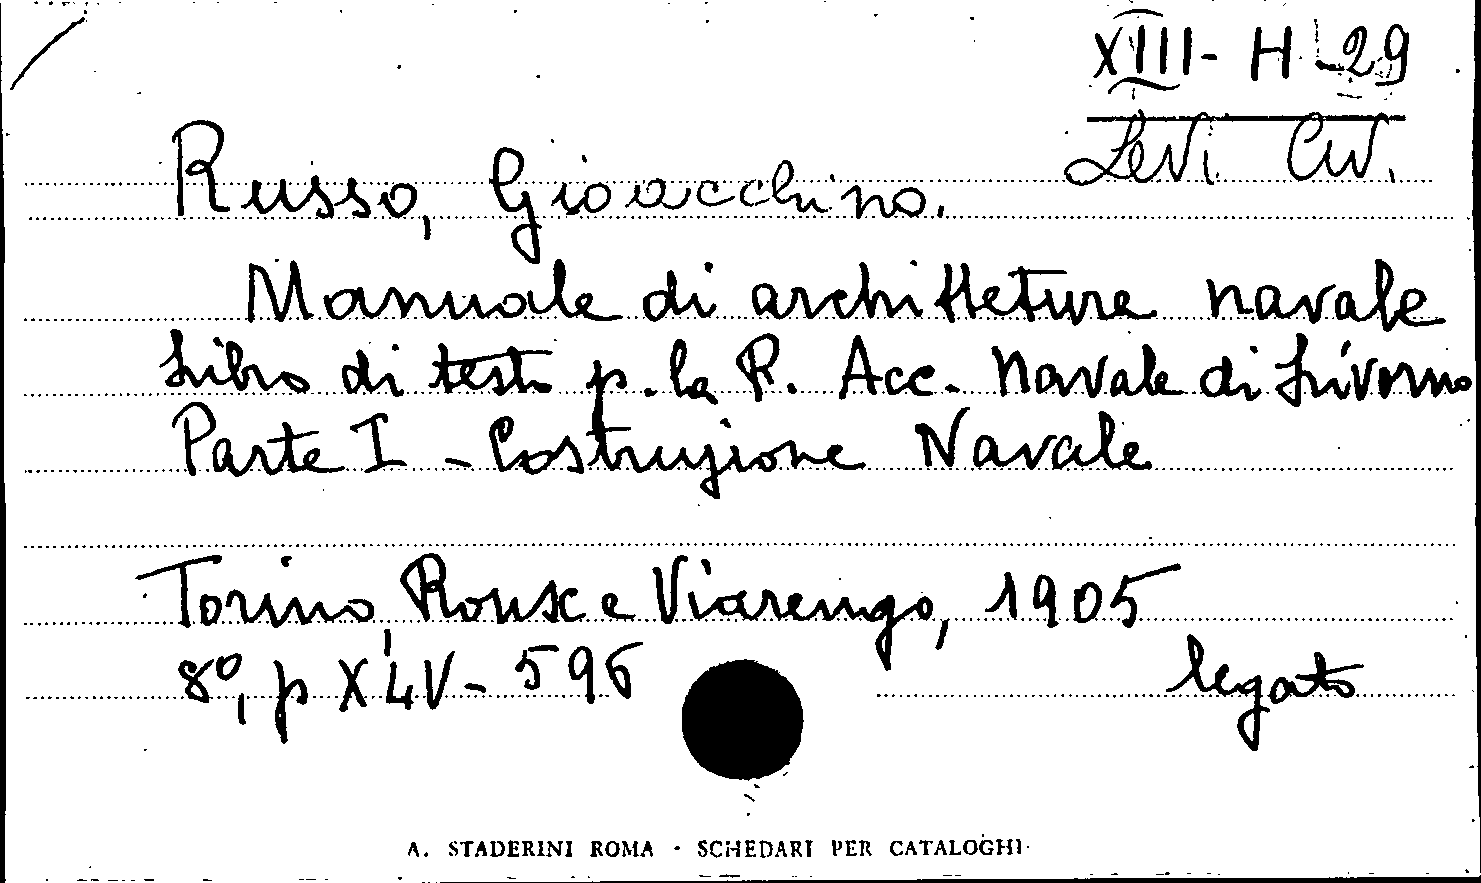 XIII - H - 29
Levi Civ.
Russo, Gioacchino.
Manuale di architettura navale
Libro di testo p. la R. Acc. Navale di Livorno
Parte I - Costruzione Navale
Torino, Roux e Viarengo, 1905
8º, p XLV - 596
legato
A. STADERINI ROMA - SCHEDARI PER CATALOGHI